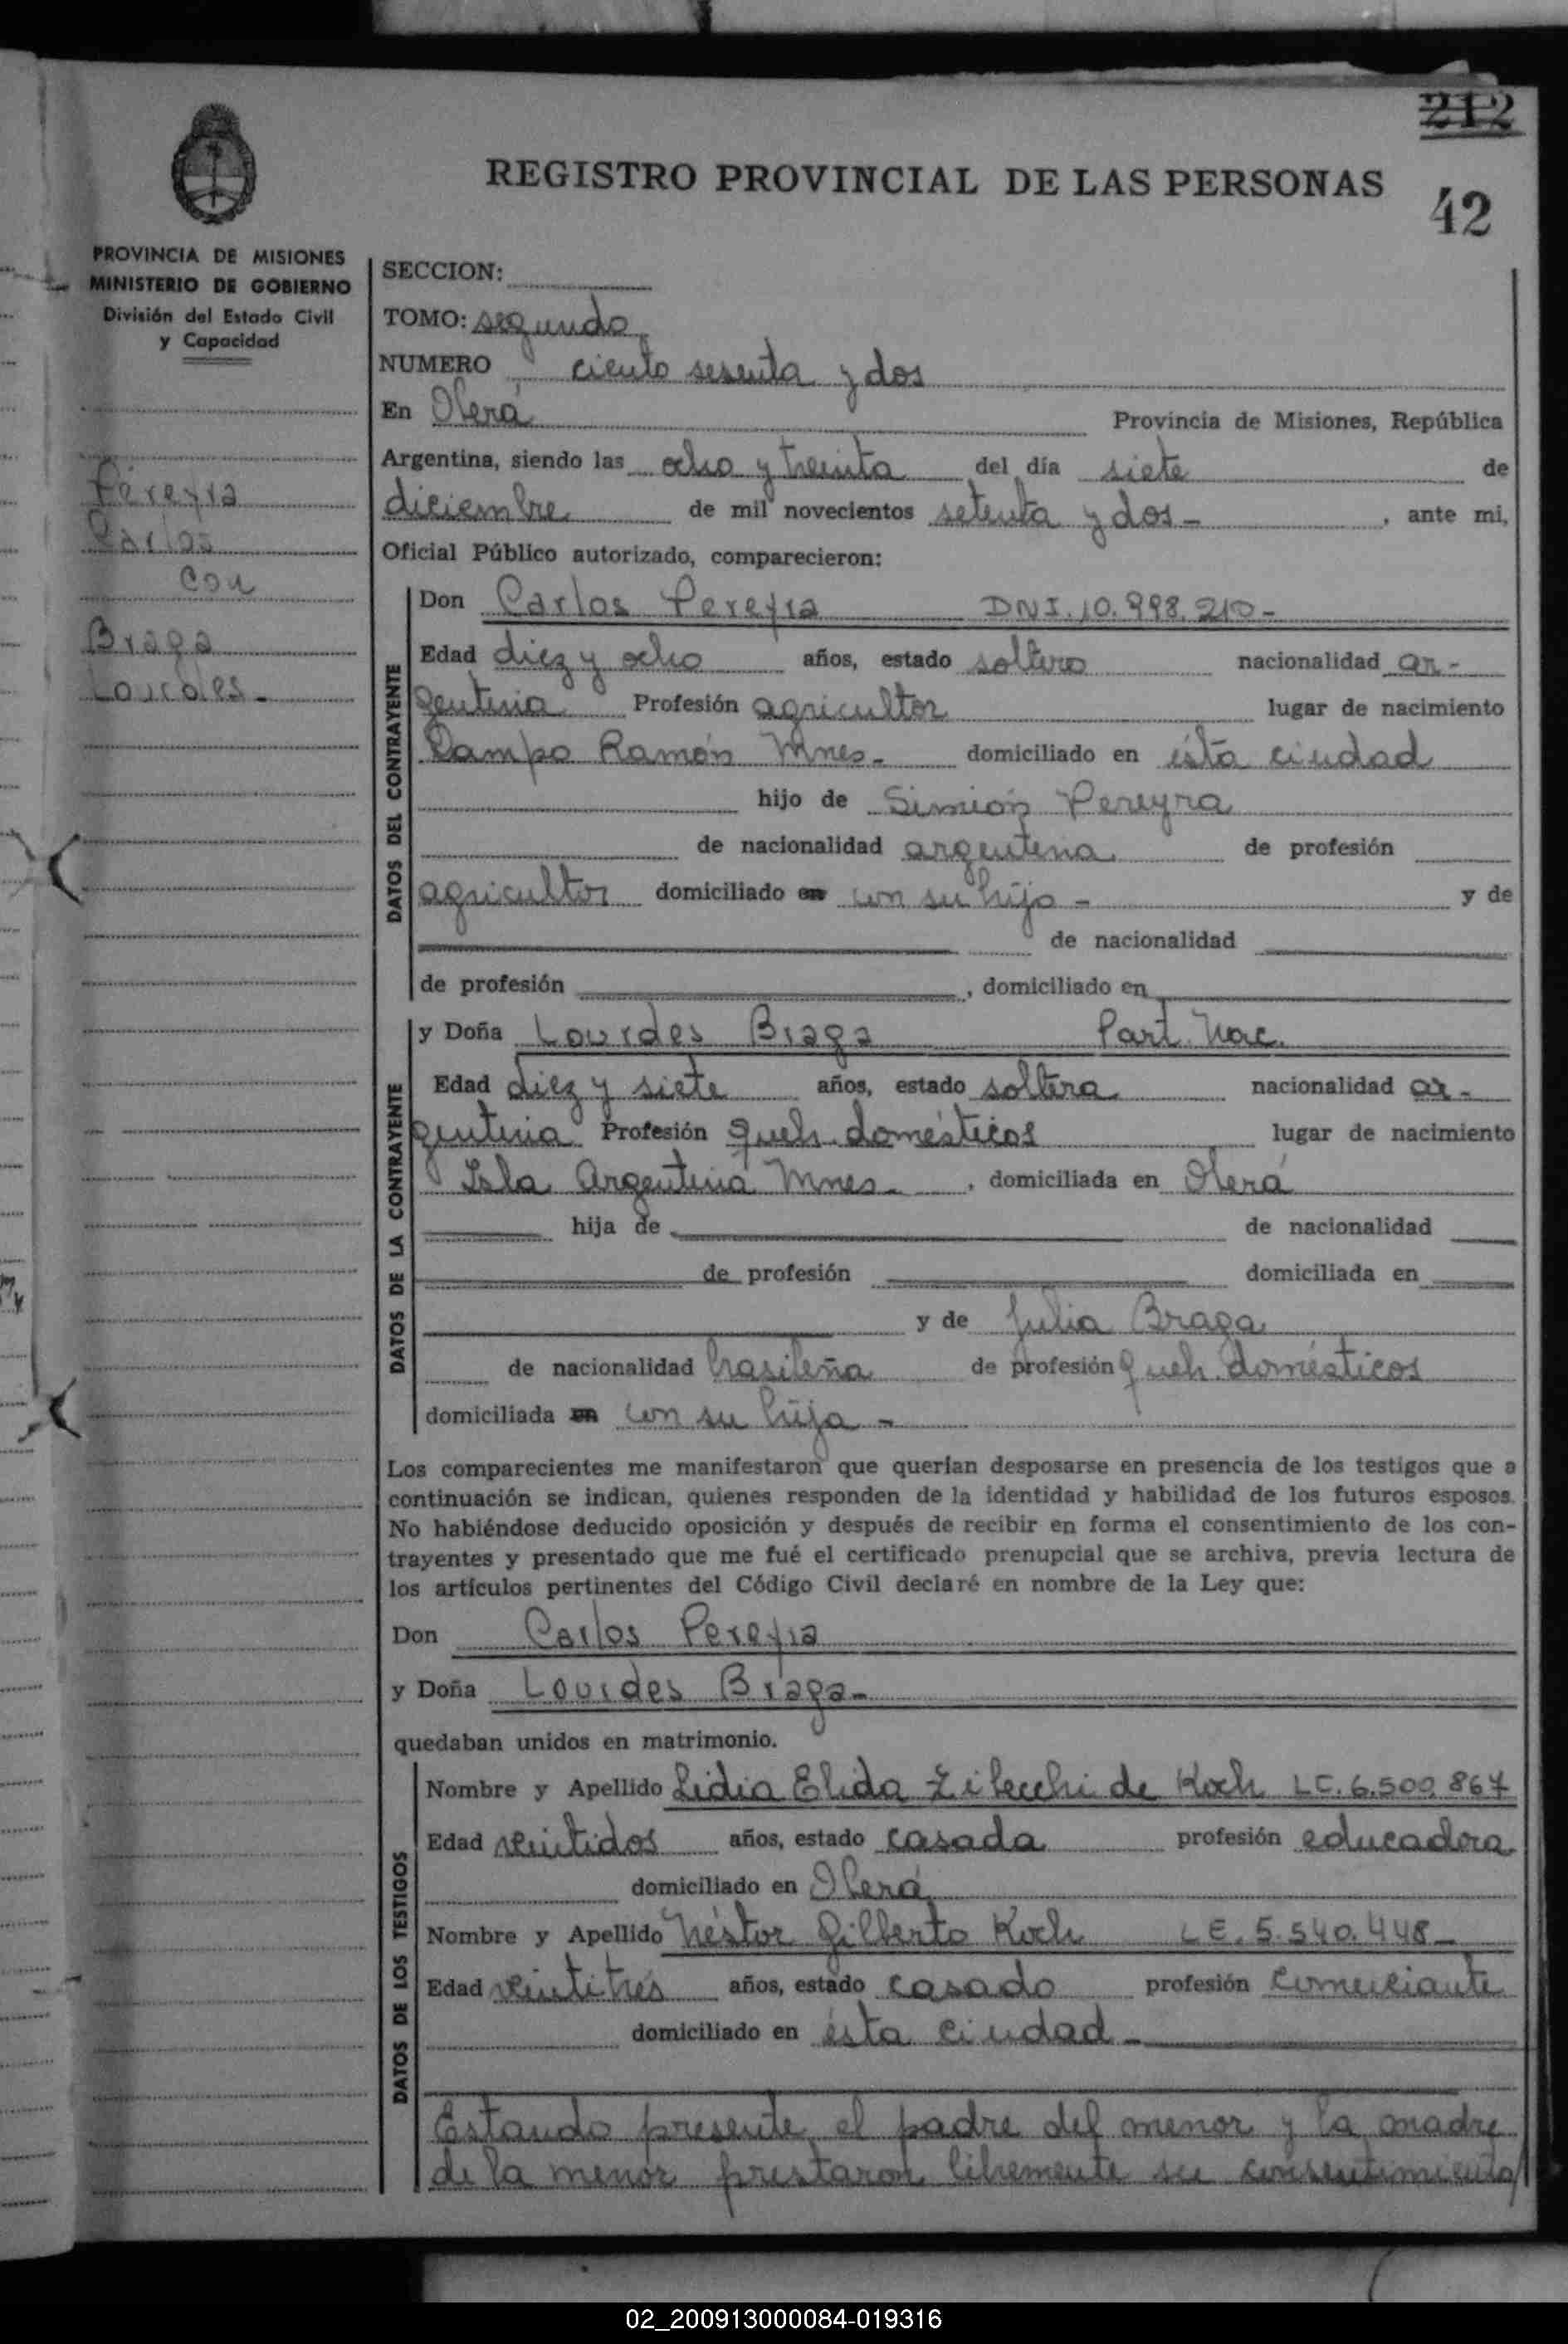 212
REGISTRO PROVINCIAL DE LAS PERSONAS
42
PROVINCIA DE MISIONES
MINISTERIO DE GOBIERNO
División del Estado Civil
y Capacidad
Pereyra
Carlos
con
Braga
Lourdes.-
SECCION:
TOMO: segundo
NUMERO ciento sesenta y dos
En Oberá Provincia de Misiones, República
Argentina, siendo las ocho y treinta del día siete de
diciembre de mil novecientos setenta y dos- , ante mi,
Oficial Público autorizado, comparecieron:
DATOS DEL CONTRAYENTE
Don Carlos Pereyra DNI. 10.998.210-
Edad diez y ocho años, estado soltero nacionalidad ar-
gentina Profesión agricultor lugar de nacimiento
Campo Ramón Mnes- domiciliado en ésta ciudad
hijo de Simión Pereyra
de nacionalidad argentina de profesión
agricultor domiciliado en con su hijo - y de
de nacionalidad
de profesión , domiciliado en
DATOS DE LA CONTRAYENTE
y Doña Lourdes Braga Part. Nac.
Edad diez y siete años, estado soltera nacionalidad ar-
gentina Profesión queh. domésticos lugar de nacimiento
Isla Argentina Mnes- , domiciliada en Oberá
hija de de nacionalidad
de profesión domiciliada en
y de Julia Braga
de nacionalidad brasileña de profesión queh. domésticos
domiciliada en con su hija -
Los comparecientes me manifestaron que querían desposarse en presencia de los testigos que a
continuación se indican, quienes responden de la identidad y habilidad de los futuros esposos.
No habiéndose deducido oposición y después de recibir en forma el consentimiento de los con-
trayentes y presentado que me fué el certificado prenupcial que se archiva, previa lectura de
los artículos pertinentes del Código Civil declaré en nombre de la Ley que:
Don Carlos Pereyra
y Doña Lourdes Braga-
quedaban unidos en matrimonio.
DATOS DE LOS TESTIGOS
Nombre y Apellido Lidia Elida Zilecchi de Koch LC. 6.500.867
Edad veintidos años, estado casada profesión educadora
domiciliado en Oberá
Nombre y Apellido Néstor Gilberto Koch LE. 5.540.448-
Edad veintitrés años, estado casado profesión comerciante
domiciliado en ésta ciudad-
Estando presente el padre del menor y la madre
de la menor prestaron libremente su consentimiento
02_200913000084-019316